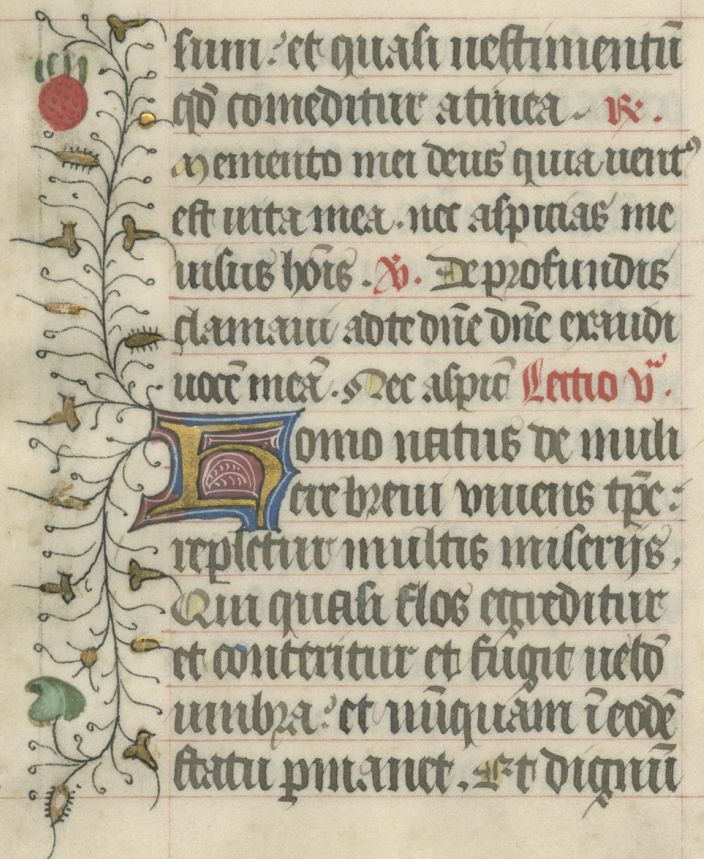 sum: et quasi uestimentū
qd̄ comeditur a tinea. R̷.
Memento mei deus quia uentꝰ
est uita mea. nec aspicias me
uisus hoīs. V̷. De profundis
clamaui ad te dn̄e dn̄e exaudi
uocē meā. Nec aspic̄ Lectio v̄.
Homo natus de muli
ere breui viuens tp̄e:
repletur multis miserijs.
Qui quasi flos egreditur
et conteritur et fugit uelud
umbra: et nūquam ī eodē
statu ꝑmanet. Et dignū